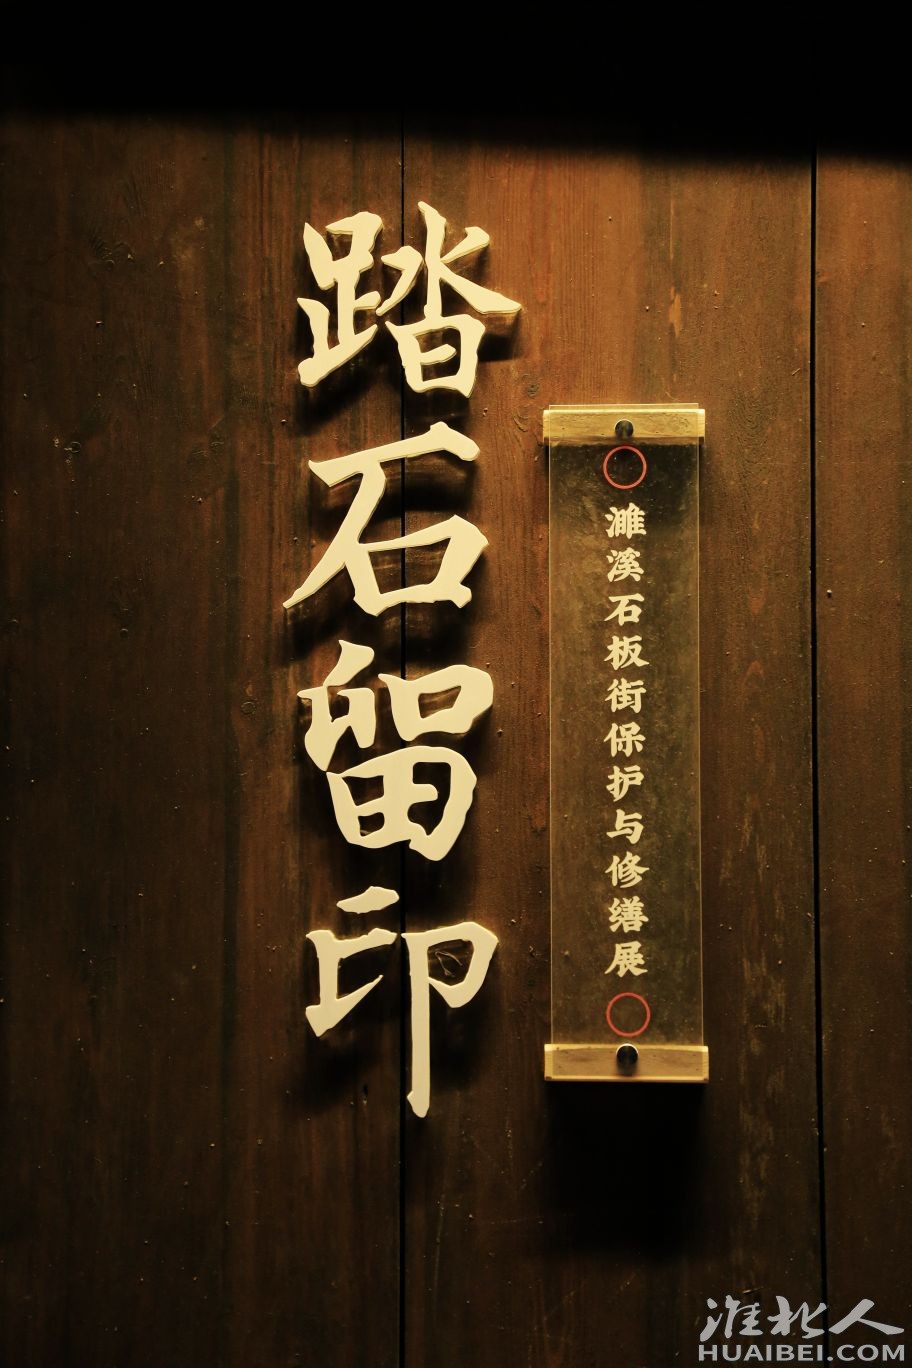 踏石留印
濉溪石板街保护与修缮展
淮北人
HUAIBEI.COM